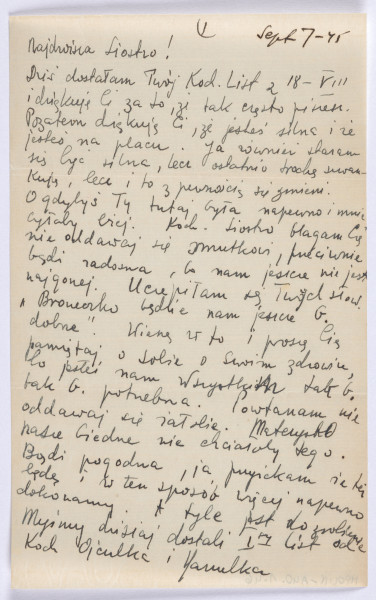 1
Sept 7-45
Najdroższa Siostro!
Dziś dostałam Twój Kod. List z 18-VIII
i dziękuję Ci za to, że tak często piszesz.
Pozatem dziękuję Ci, że jesteś silna i że
jesteś na placu. Ja również staram
się być silna, lecz ostatnio trochę szwan-
kuję, lecz i to z pewnością się zmieni.
O gdybyś Ty tutaj była napewno i mnie
byłoby lżej. Koch. Siostro błagam Cię
nie oddawaj się smutkowi, przeciwnie
bądź radosna, bo nam jeszcze nie jest
najgorzej. Uczepiłam się Twych słów
"Broneczko będzie nam jeszcze b.
dobrze". Wierzę w to i proszę Cię
pamiętaj o sobie o swoim zdrowiu,
bo jesteś nam wszystkim tak b.
tak b. potrzebna. Powtarzam nie
oddawaj się żałobie. Mateczko
nasze biedne nie chciałoby tego.
Bądź pogodna, ja przyrzekam że też
będę i w ten sposób więcej napewno
dokonamy. A tyle jest do zrobienia
Myśmy dzisiaj dostali I-szy List od
Koch Ojculka i